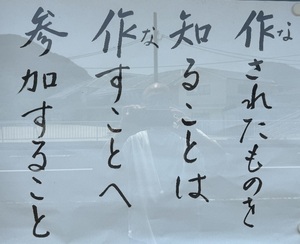 作なされたものを
知ることは
作なすことへ
参加すること